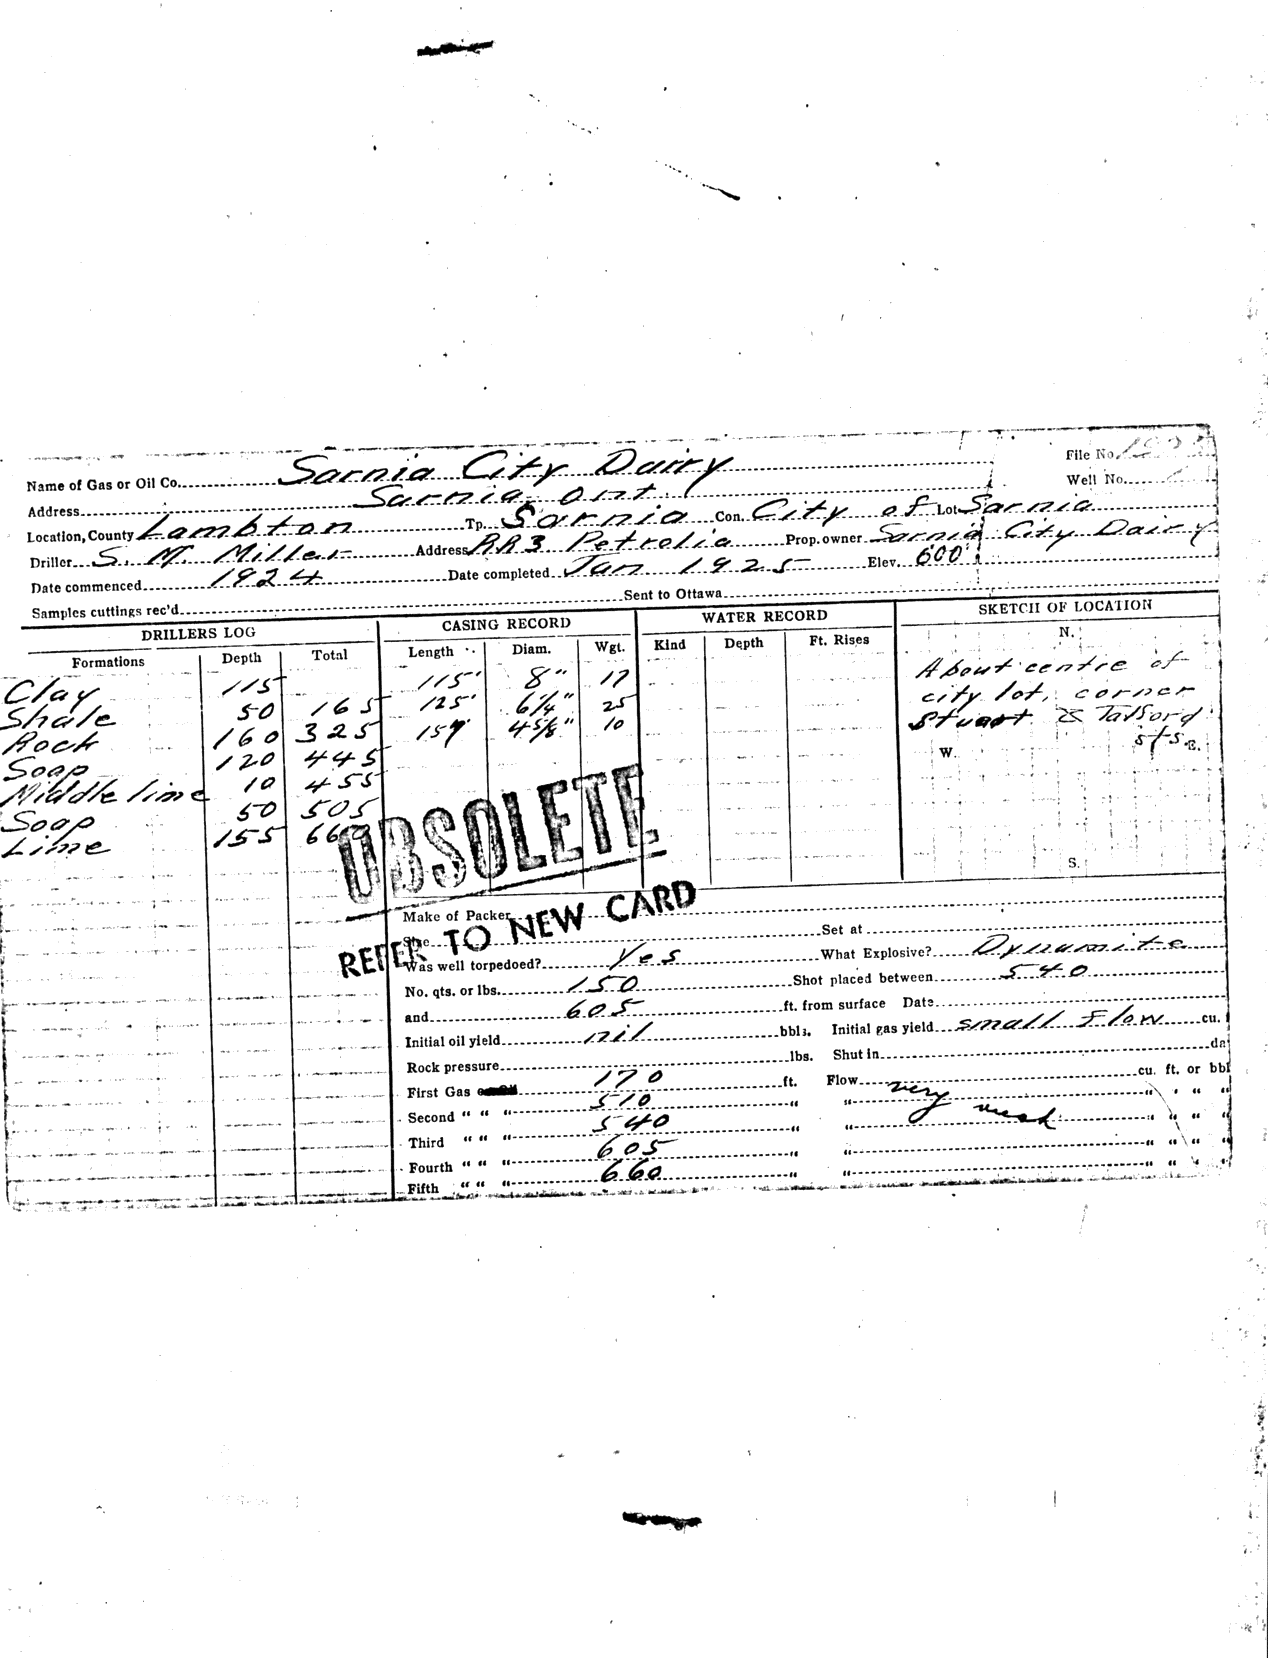 File No.
Name of Gas or Oil Co. Sarnia City Dairy
Well No.
Address Sarnia, Ont.
Location, County Lambton Tp. Sarnia Con. City of Lot Sarnia
Driller S. M. Miller Address RR3 Petrolia Prop. owner Sarnia City Dairy
Date commenced 1924 Date completed Jan 1925 Elev. 600
Samples cuttings rec'd Sent to Ottawa
DRILLERS LOG CASING RECORD WATER RECORD SKETCH OF LOCATION
Formations Depth Total Length Diam. Wgt. Kind Depth Ft. Rises N.
Clay 115 115' 8" 17 About centre of
Shale 50 165 125' 6 1/4" 25 city lot, corner
Rock 160 325 157 4 5/8" 10 Stuart & Talford
Soap 120 445 W. sts. E.
Middle lime 10 455
Soap 50 505
Lime 155 660
OBSOLETE
S.
REFER TO NEW CARD
Make of Packer
Size Set at
Was well torpedoed? Yes What Explosive? Dynamite
No. qts. or lbs. 150 Shot placed between 540
and 605 ft. from surface Date
Initial oil yield nil bbls. Initial gas yield small flow cu.
Rock pressure lbs. Shut in da
First Gas 170 ft. Flow very weak cu. ft. or bbl
Second " " " 510 " " " " "
Third " " " 540 " " " " "
Fourth " " " 605 " " " " "
Fifth " " " 660 " " " " "